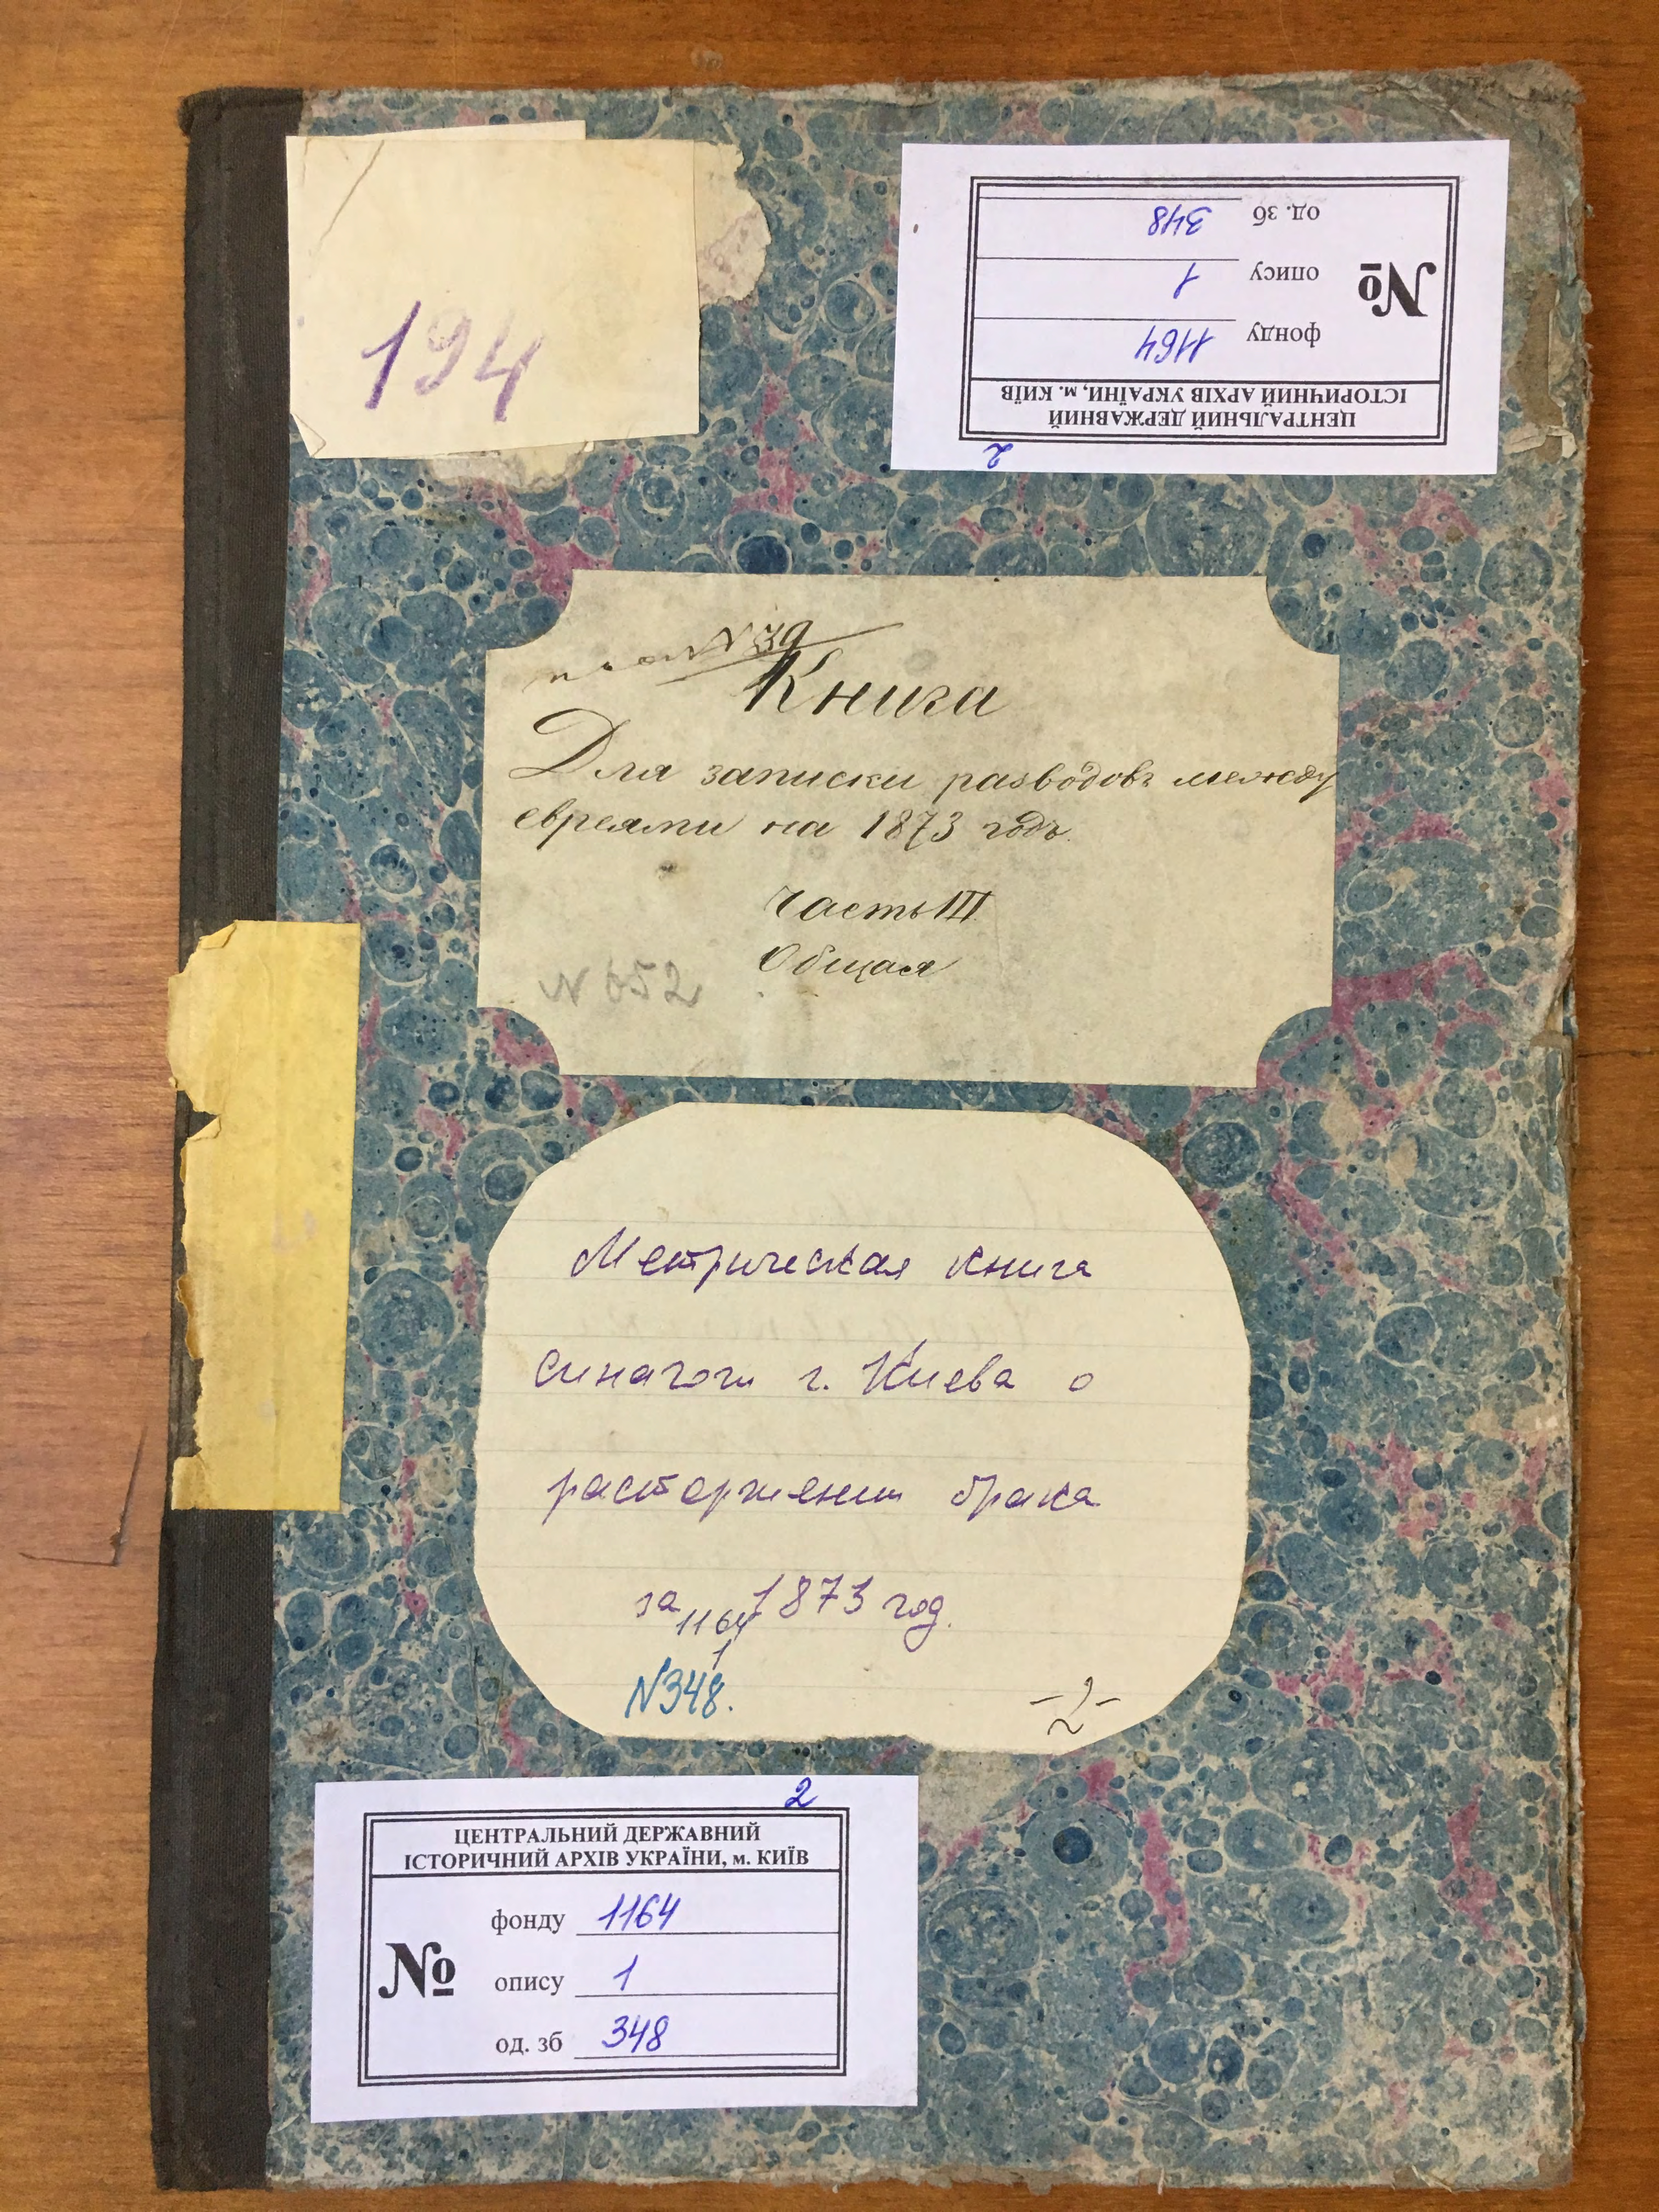 194
ЦЕНТРАЛЬНИЙ ДЕРЖАВНИЙ
ІСТОРИЧНИЙ АРХІВ УКРАЇНИ, м. КИЇВ
№
фонду 1164
опису 1
од. зб 348
2
N 39
Книга
Для записки разводовъ между
евреями на 1873 годъ.
Часть III
Общая
N 652
Метрическая книга
синагоги г. Киева о
расторжении брака
за 1873 год.
1164
1
N348.
-2-
2
ЦЕНТРАЛЬНИЙ ДЕРЖАВНИЙ
ІСТОРИЧНИЙ АРХІВ УКРАЇНИ, м. КИЇВ
№
фонду 1164
опису 1
од. зб 348